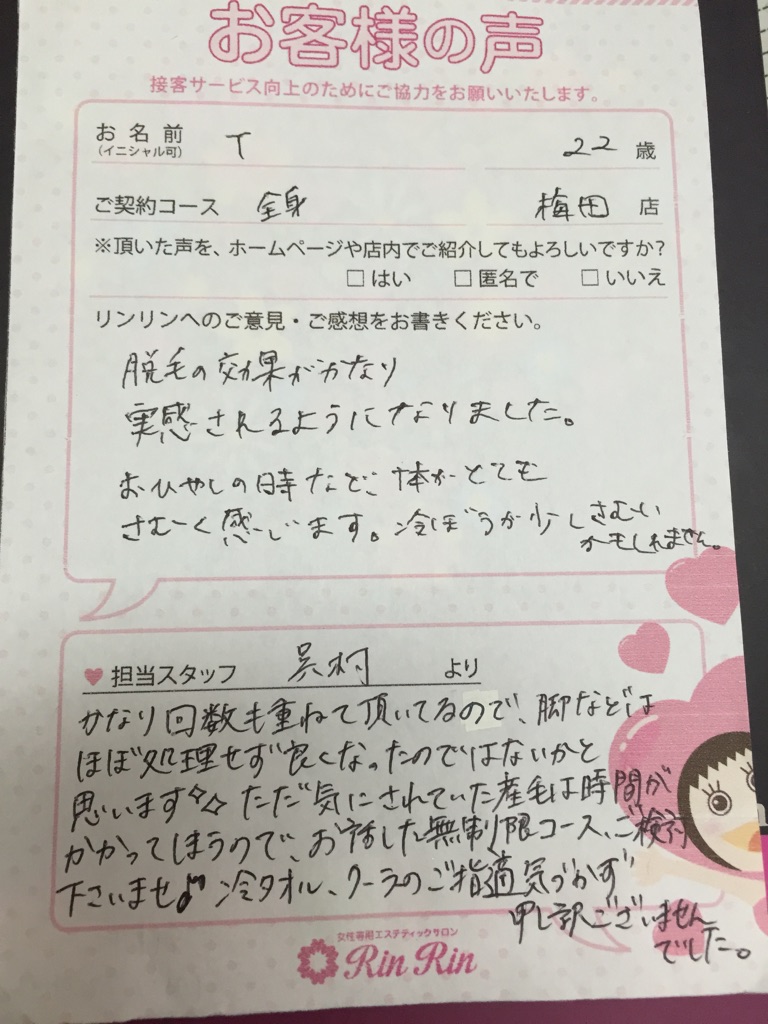 お客様の声
接客サービス向上のためにご協力をお願いいたします。
お名前 T 22 歳
(イニシャル可)
ご契約コース 全身 梅田 店
※頂いた声を、ホームページや店内でご紹介してもよろしいですか?
□ はい □ 匿名で □ いいえ
リンリンへのご意見・ご感想をお書きください。
脱毛の効果がかなり
実感されるようになりました。
おひやしの時など、体がとても
さむーく感じます。冷ぼうが少しさむい
かもしれません。
♥ 担当スタッフ 呉村 より
かなり回数も重ねて頂いてるので、脚などは
ほぼ処理せず良くなったのではないかと
思います☆ ただ気にされていた産毛は時間が
かかってしまうので、お話した無制限コース、ご検討
下さいませ♪ 冷タオル、クーラのご指適気づかず
申し訳ございません
でした。
女性専用エステティックサロン
Rin Rin